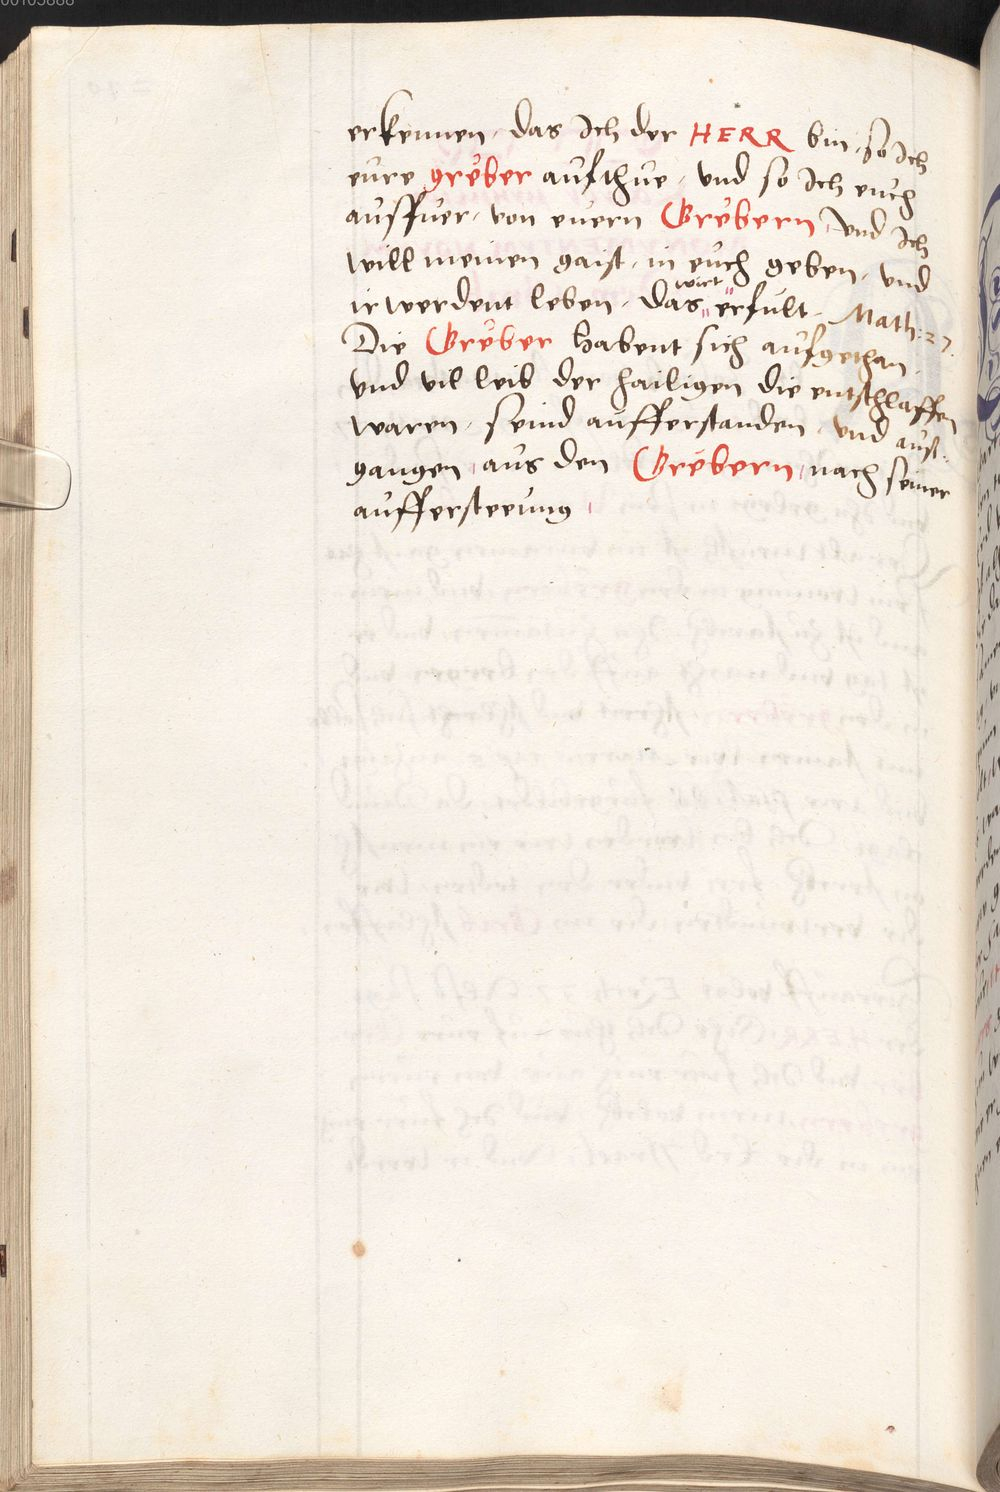 erkennen, das Ich der HERR bin, so Ich
eure greber aufthue, vnd so Ich euch
auffuer, von euern Grebern, vnd Ich
will meinen gaist, in euch geben, vnd
ir werdent leben, das wirt erfult, Math: 27.
Die Greber habent sich aufgethan,
vnd vil leib der hailigen die entschlaffen
waren, seind aufferstanden, vnd aus=
gangen, aus den Grebern, nach seiner
auffersteeung